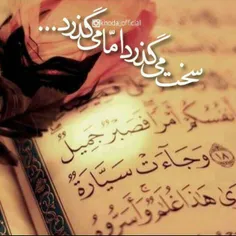 knoda_official
سخت می‌گذرد امّا می‌گذرد...
أَنفُسُكُمْ أَمْرًا فَصَبْرٌ جَمِيلٌ
١٨ وَجَاءَتْ سَيَّارَةٌ
هَٰذَا غُلَامٌ وَأَسَرُّوهُ